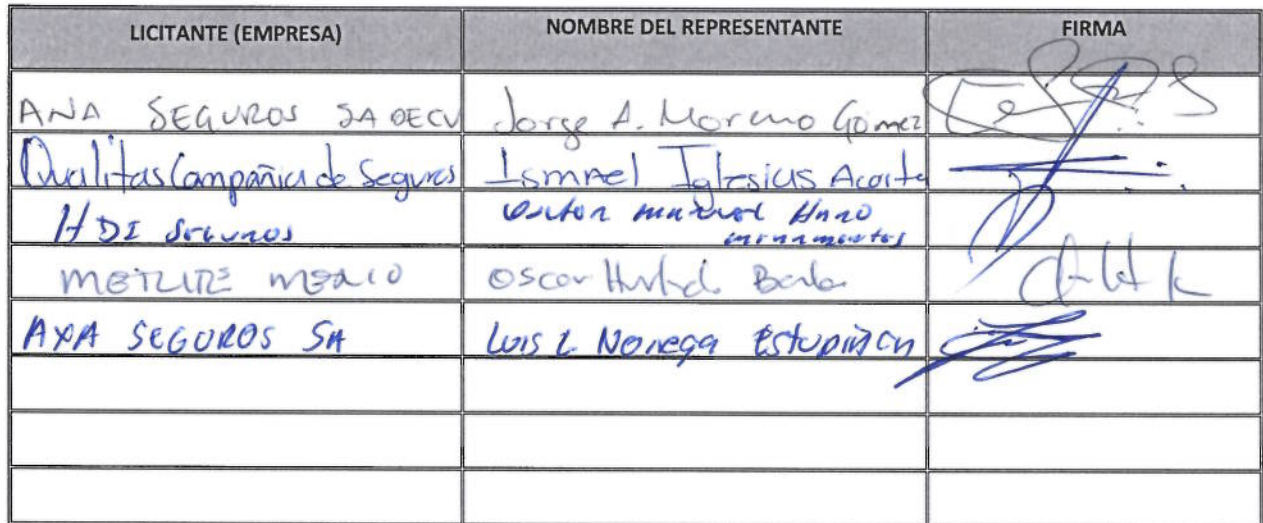 LICITANTE (EMPRESA) NOMBRE DEL REPRESENTANTE FIRMA
ANA SEGUROS SA DE CV Jorge A. Moreno Gómez
Qualitas Compañia de Seguros Ismael Iglesias Acosta
HDI Seguros Manuel Haro
METLIFE MEXICO Oscar
AXA SEGUROS SA Luis L Noriega Estupiñan